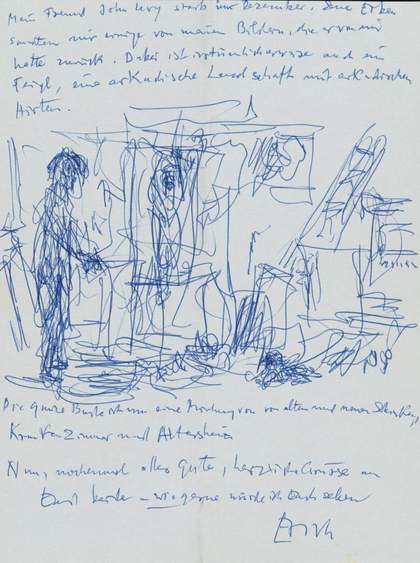 Mein Freund John Levy starb im Dezember. Seine Erben
sandten mir einige von meinen Bildern, die er von mir
hatte zurück. Dabei ist irrtümlicherweise auch ein
Feigl, eine arkadische Landschaft mit arkadischen
Hirten.
Die ganze Bude ist nun eine Mischung von alten und neuen
Krankenzimmer und Altersheim
Nun, nochmal alles Gute, herzliche Grüsse an
Euch beide – wie gerne würde ich Euch sehen
Erich